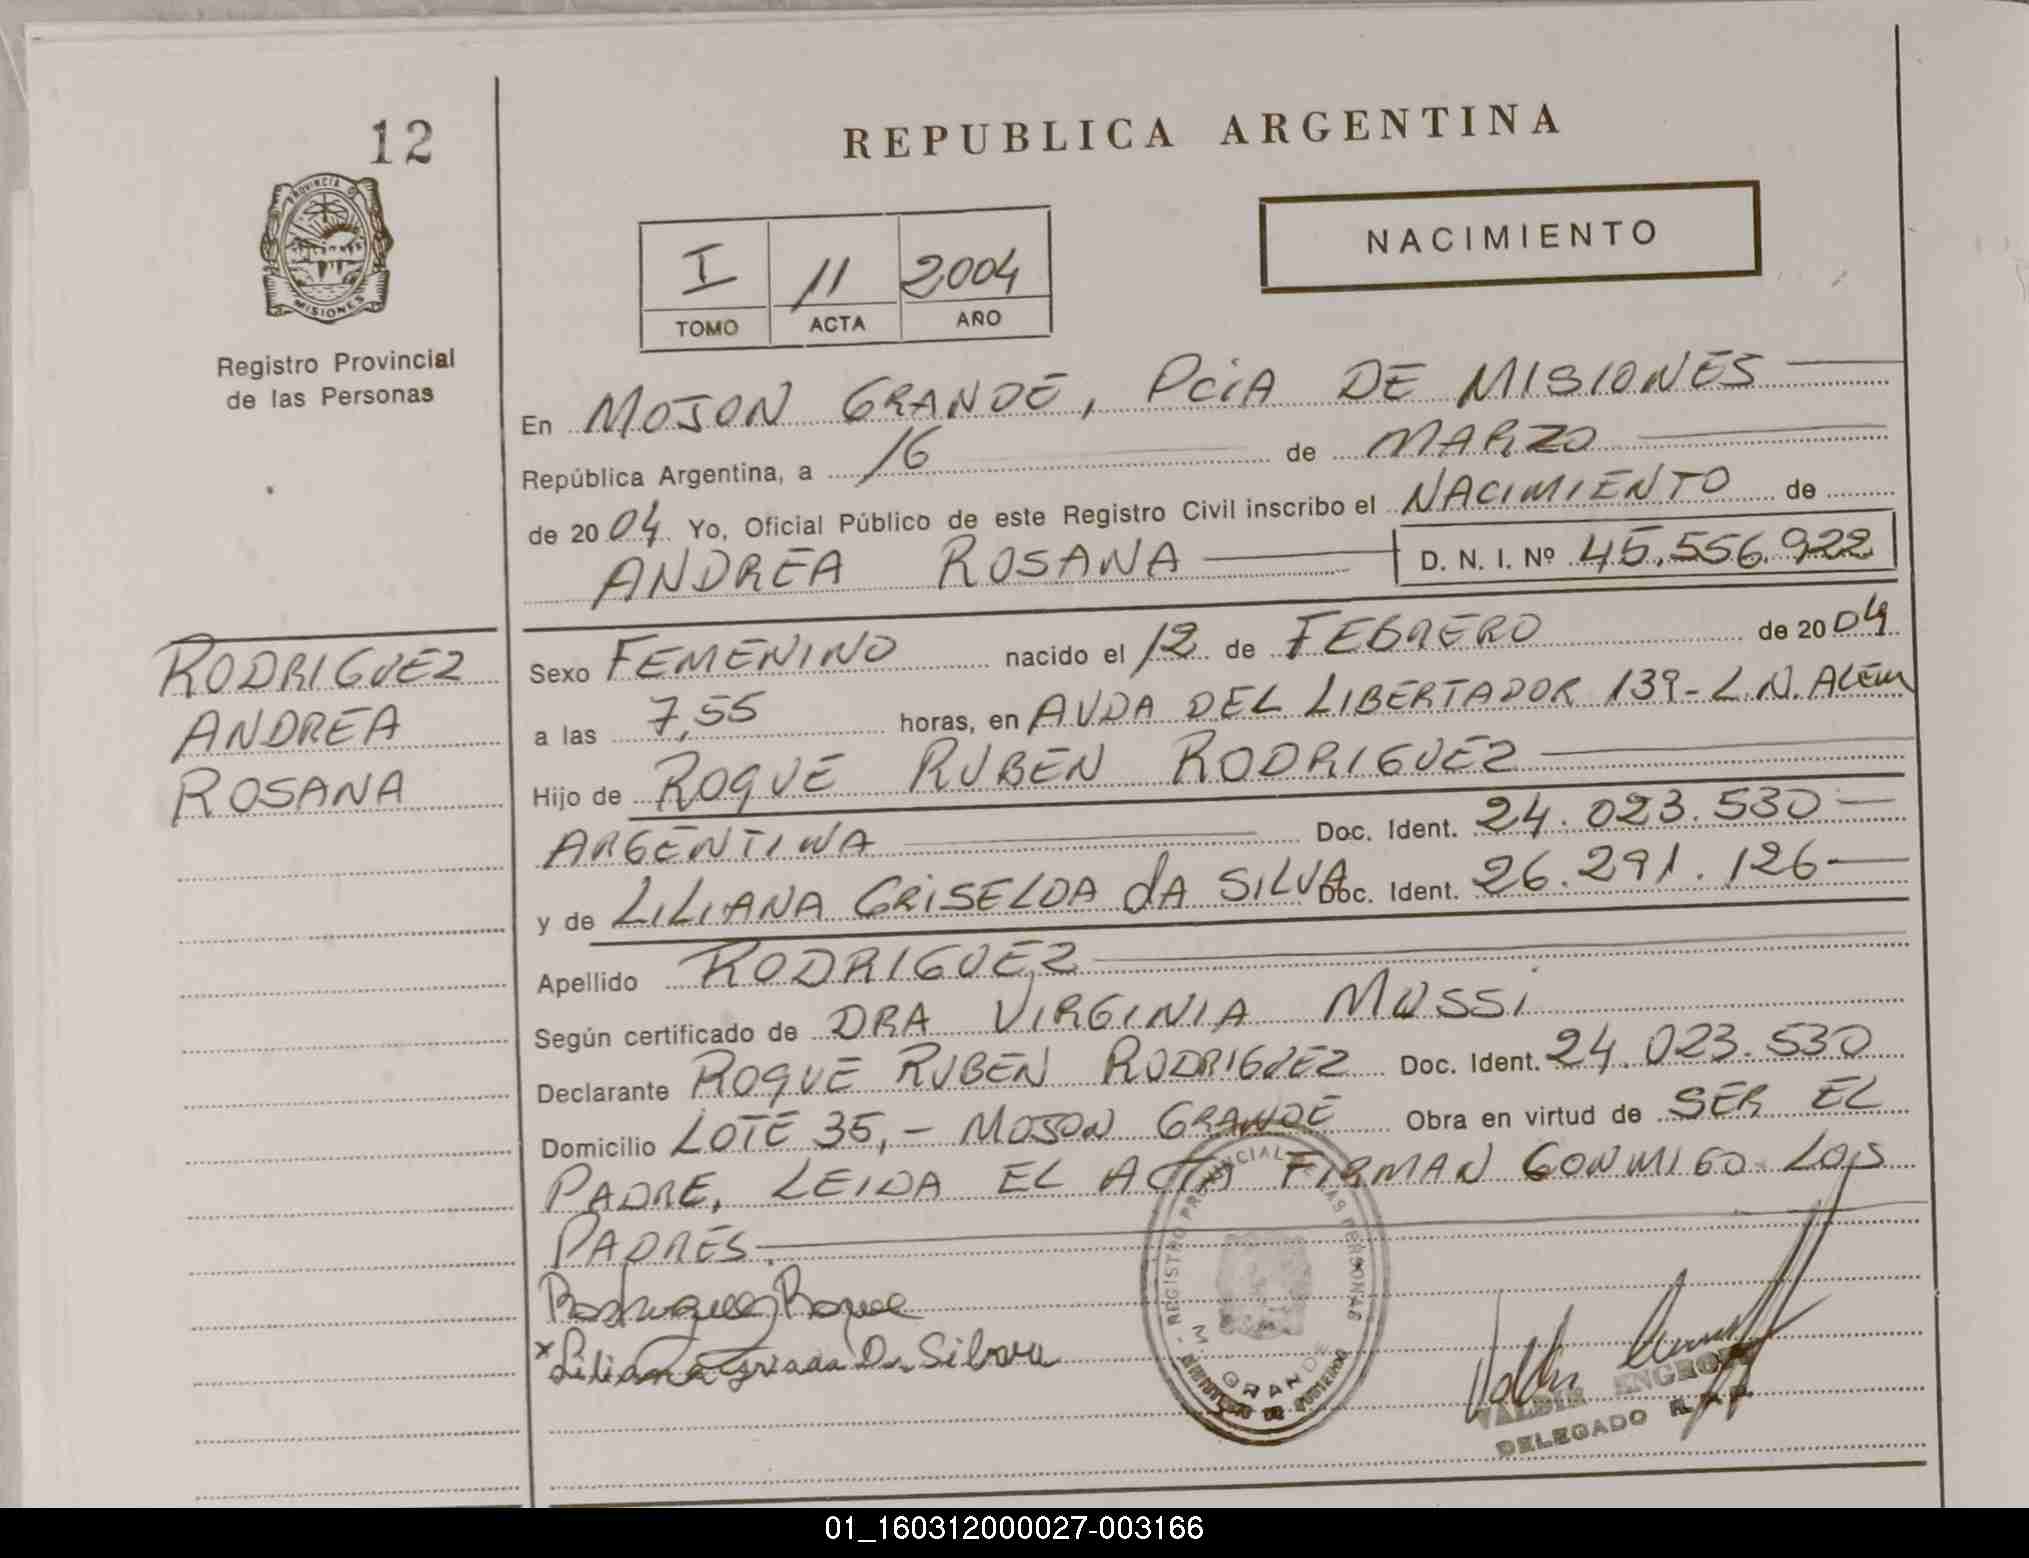 12
PROVINCIA DE
MISIONES
Registro Provincial
de las Personas
REPUBLICA ARGENTINA
NACIMIENTO
I 11 2004
TOMO ACTA AÑO
En MOJON GRANDE, PciA DE MISIONES
República Argentina, a 16 de MARZO
de 2004 Yo, Oficial Público de este Registro Civil inscribo el NACIMIENTO de
ANDREA ROSANA D. N. I. Nº 45.556.922
RODRIGUEZ
ANDREA
ROSANA
Sexo FEMENINO nacido el 12 de FEBRERO de 2004
a las 7,55 horas, en AVDA DEL LIBERTADOR 139-L.N. ALEM
Hijo de ROQUE RUBEN RODRIGUEZ
ARGENTINA Doc. Ident. 24.023.530
y de LILIANA GRISELDA dA SILVA Doc. Ident. 26.291.126
Apellido RODRIGUEZ
Según certificado de DRA VIRGINIA MUSSI
Declarante ROQUE RUBEN RODRIGUEZ Doc. Ident. 24.023.530
Domicilio LOTE 35,- MOJON GRANDE Obra en virtud de SER EL
PADRE, LEIDA EL ACTA FIRMAN CONMIGO LOS
PADRES.
Rodriguez Roque
Liliana Da Silva
REGISTRO PROVINCIAL DE LAS PERSONAS
M. GRANDE
DELEGADO
01_160312000027-003166